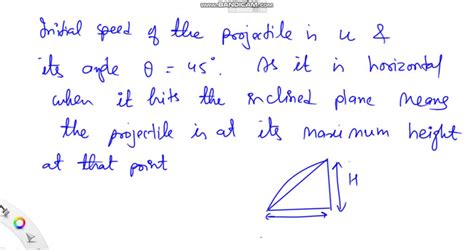 www.BANDICAM.com
Initial speed of the projectile is u &
its angle θ = 45°. As it is horizontal
when it hits the inclined plane means
the projectile is at its maximum height
at that point
H